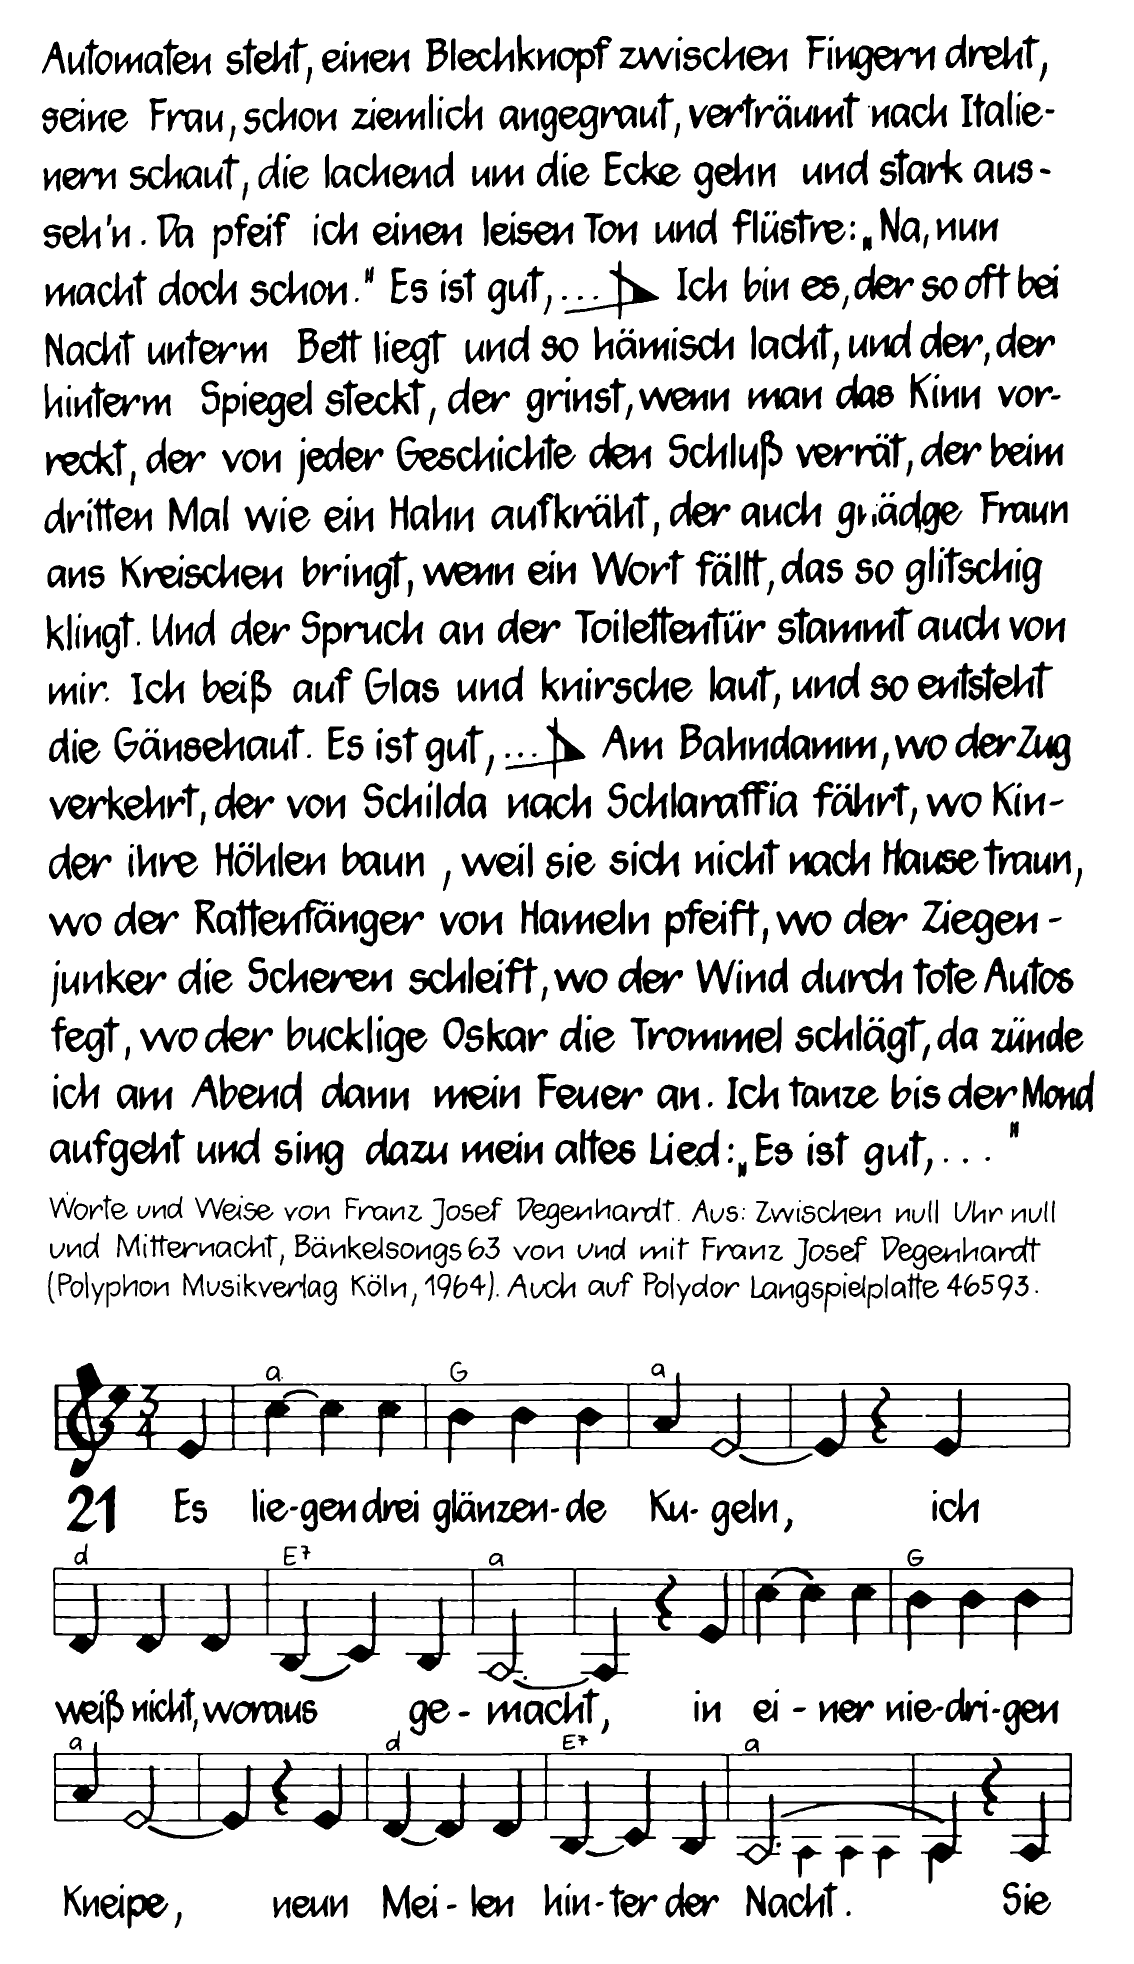 Automaten steht, einen Blechknopf zwischen Fingern dreht,
seine Frau, schon ziemlich angegraut, verträumt nach Italie-
nern schaut, die lachend um die Ecke gehn und stark aus-
seh'n. Da pfeif ich einen leisen Ton und flüstre: „Na, nun
macht doch schon." Es ist gut, ... Ich bin es, der so oft bei
Nacht unterm Bett liegt und so hämisch lacht, und der, der
hinterm Spiegel steckt, der grinst, wenn man das Kinn vor-
reckt, der von jeder Geschichte den Schluß verrät, der beim
dritten Mal wie ein Hahn aufkräht, der auch gnädge Fraun
ans Kreischen bringt, wenn ein Wort fällt, das so glitschig
klingt. Und der Spruch an der Toilettentür stammt auch von
mir. Ich beiß auf Glas und knirsche laut, und so entsteht
die Gänsehaut. Es ist gut, ... Am Bahndamm, wo der Zug
verkehrt, der von Schilda nach Schlaraffia fährt, wo Kin-
der ihre Höhlen baun , weil sie sich nicht nach Hause traun,
wo der Rattenfänger von Hameln pfeift, wo der Ziegen-
junker die Scheren schleift, wo der Wind durch tote Autos
fegt, wo der bucklige Oskar die Trommel schlägt, da zünde
ich am Abend dann mein Feuer an. Ich tanze bis der Mond
aufgeht und sing dazu mein altes Lied: „Es ist gut, ... "
Worte und Weise von Franz Josef Degenhardt. Aus: Zwischen null Uhr null
und Mitternacht, Bänkelsongs 63 von und mit Franz Josef Degenhardt
(Polyphon Musikverlag Köln, 1964). Auch auf Polydor Langspielplatte 46593.
a G a
3
4
21 Es lie-gen drei glänzen-de Ku-geln, ich
d E7 a G
weiß nicht, woraus ge-macht, in ei-ner nie-dri-gen
a d E7 a
Kneipe, neun Mei-len hin-ter der Nacht. Sie